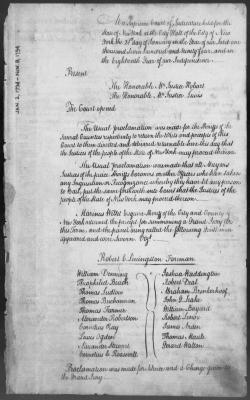 JAN. 2, 1794 - NOV. 8, 1794
At a Supreme Court of Judicature held for the
State of New York at the City Hall of the City of New
York the 21st day of January in the Year of our Lord one
thousand seven hundred and ninety four, and in
the Eighteenth Year of our Independence.
Present
The Honorable Mr. Justice Hobart
The Honorable Mr. Justice Lewis
The Court opened
The Usual proclamation was made for the Sheriffs of the
several Counties respectively to return the Writs and precepts of this
Court to them directed and delivered returnable here this day that
the Justices of the people of the State of New York may proceed thereon.
The Usual proclamation was made that all Mayors
Justices of the peace Sheriffs Coroners or other Officers who have taken
any Inquisition or Recognizance whereby they have let any person
to Bail, put the same forthwith into Court that the Justices of the
people of the State of New York may proceed thereon.
Marinus Willet Esquire Sheriff of the City and County of
New York returned the precept for summoning a Grand Jury
this Term, and the pannel being called the following
appeared and were Sworn Viz.
Robert C. Livingston Foreman
William Denning
Theophilact Bache
Thomas Ludlow
Thomas Buchannan
Thomas Farmer
Alexander Robertson
Cornelius Ray
Lewis Ogden
Alexander
Cornelius C. Roosevelt
Joshua Waddington
Robert
Abraham Brinkerhoff
John
William Bayard
Robert Lewis
James Arden
Thomas
Gerard Walton
Proclamation was made for Silence and a Charge given to
the Grand Jury.